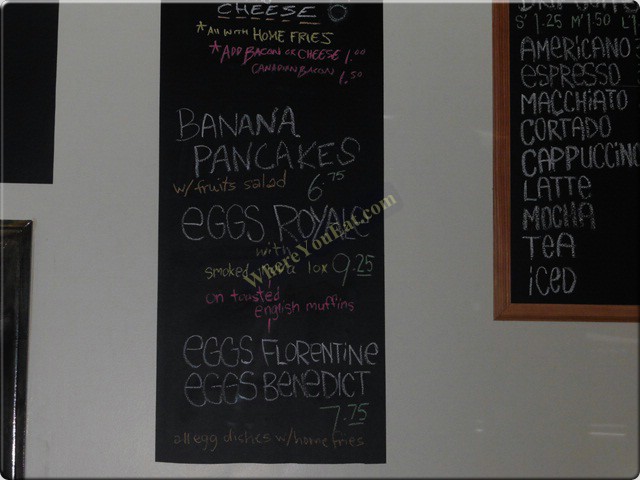 CHEESE
*All with HOME FRIES
*ADD BACON OR CHEESE 1.00
CANADIAN BACON 1.50
BANANA
PANCAKES
w/fruits salad 6.75
eGGS ROYALe
with
smoked lox 9.25
on toasted
english muffins
eGGS FLORENTINE
eGGS BENEDICT
7.75
all egg dishes w/home fries
WhereYouEat.com
S 1.25 M 1.50 L
AMERICANO
ESPRESSO
MACCHIATO
CORTADO
CAPPUCCINO
LATTE
MOCHA
TEA
iCED